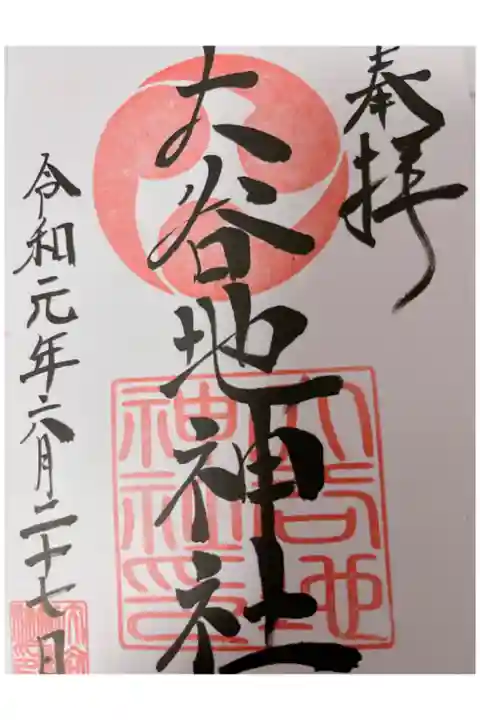 奉拝
大谷地神社
令和元年六月二十七日
大谷地
神社印